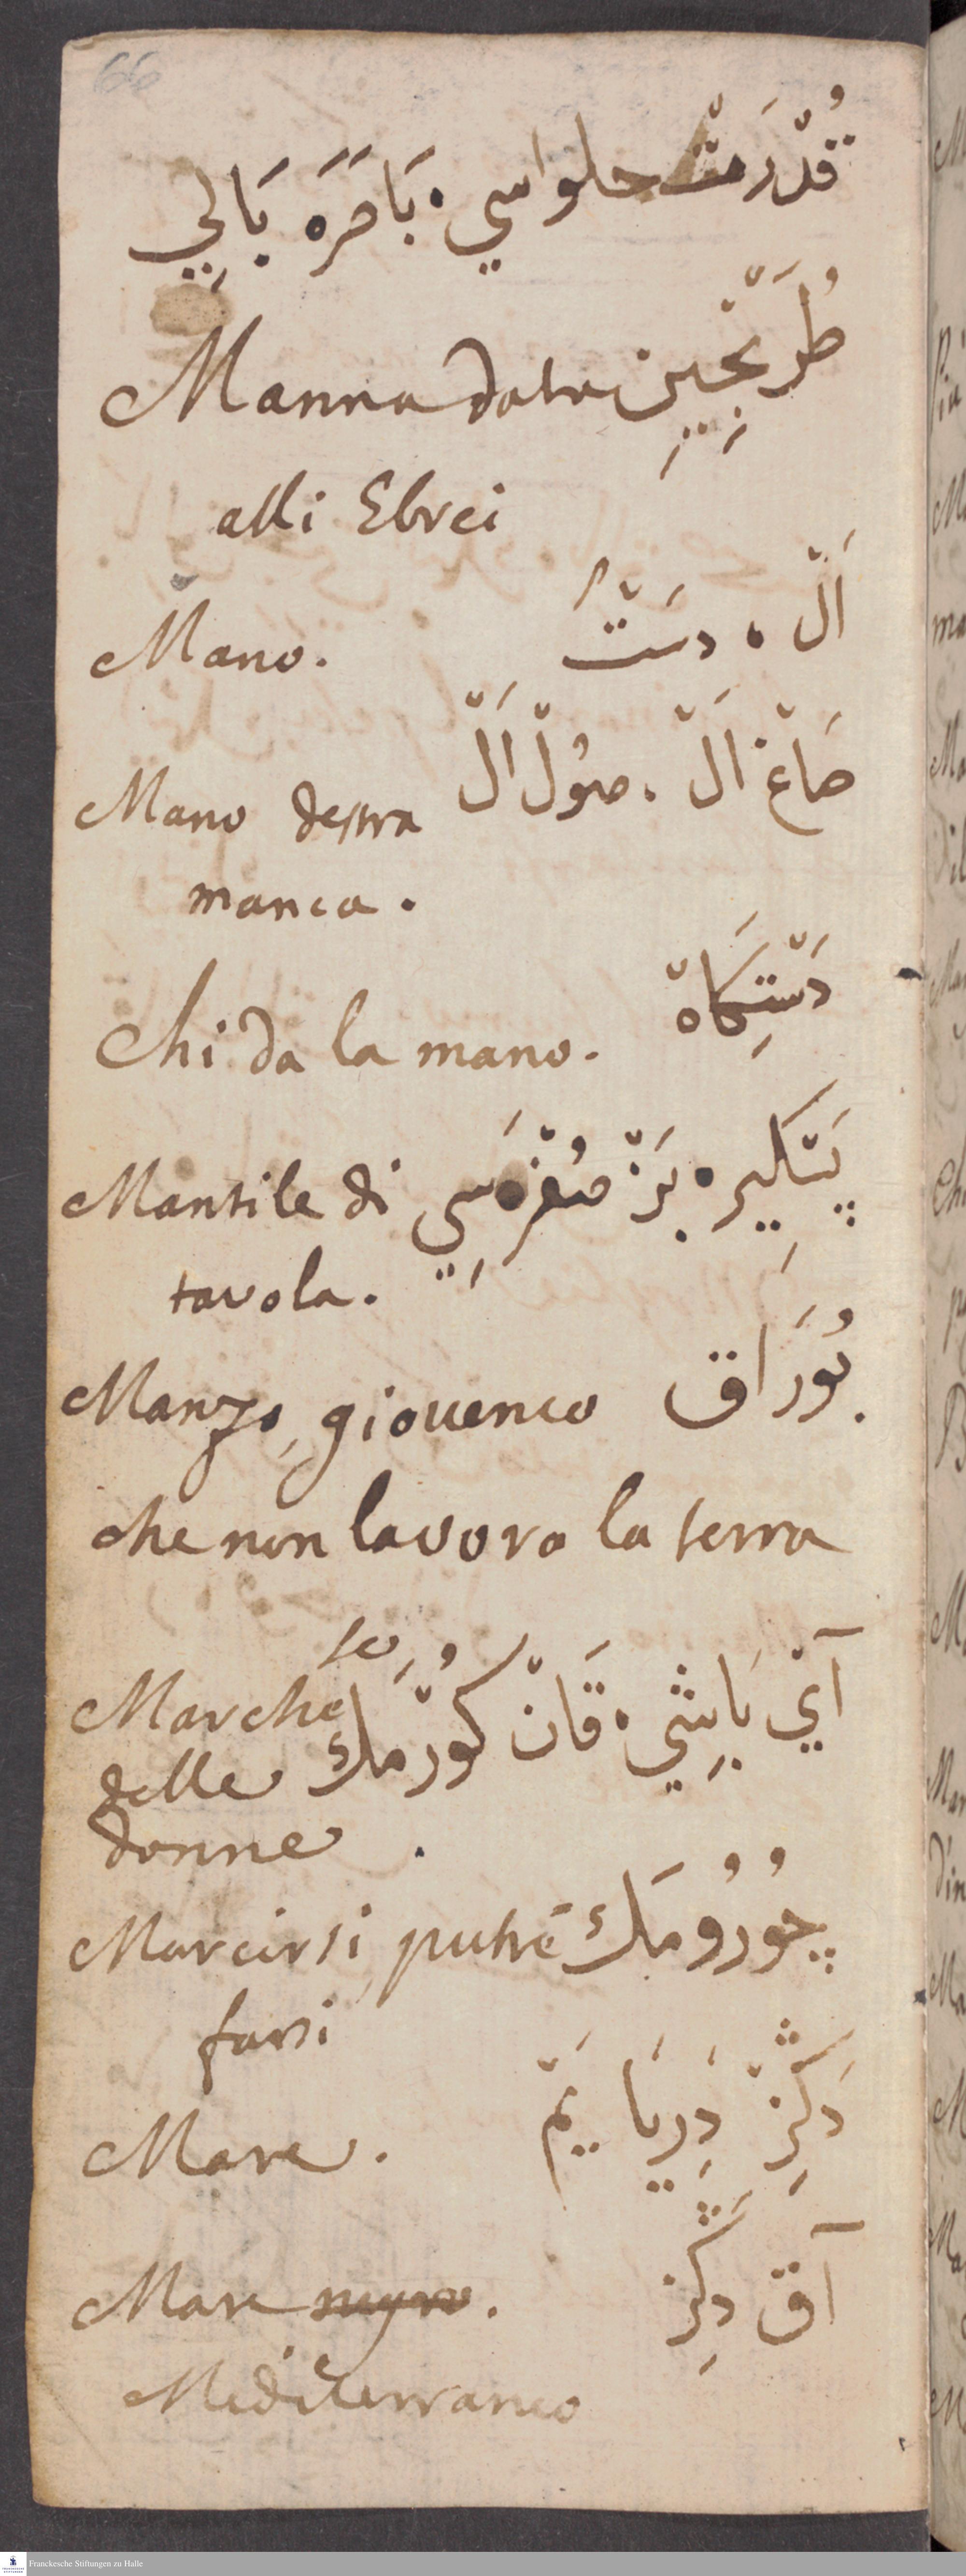 66
قُدْرَتْ حلواسي ، بَاصَرَه بَالِي
Manna data طُرَنْجِبِين
alli Ebrei
Mano. اَلْ ، دسَتْ
Mano destra صَاغْ اَلْ ، صُولْ اَلْ
manca.
Chi da la mano. دَسْتِكَاهْ
Mantile di پَشكِير ، بَزْ سُفْرَه سِي
tavola.
Manzo, giouenco بُوزَاق
che non lavora la terra
Marchese آيْ بَاشِي ، قَانْ كُورْمَك
delle
donne.
Marcirsi, putre چُورُومَك
farsi
Mare. دَڭِزْ دَرِيَا يَمْ
Mare آق دَڭِز
Mediterraneo
Franckesche Stiftungen zu Halle